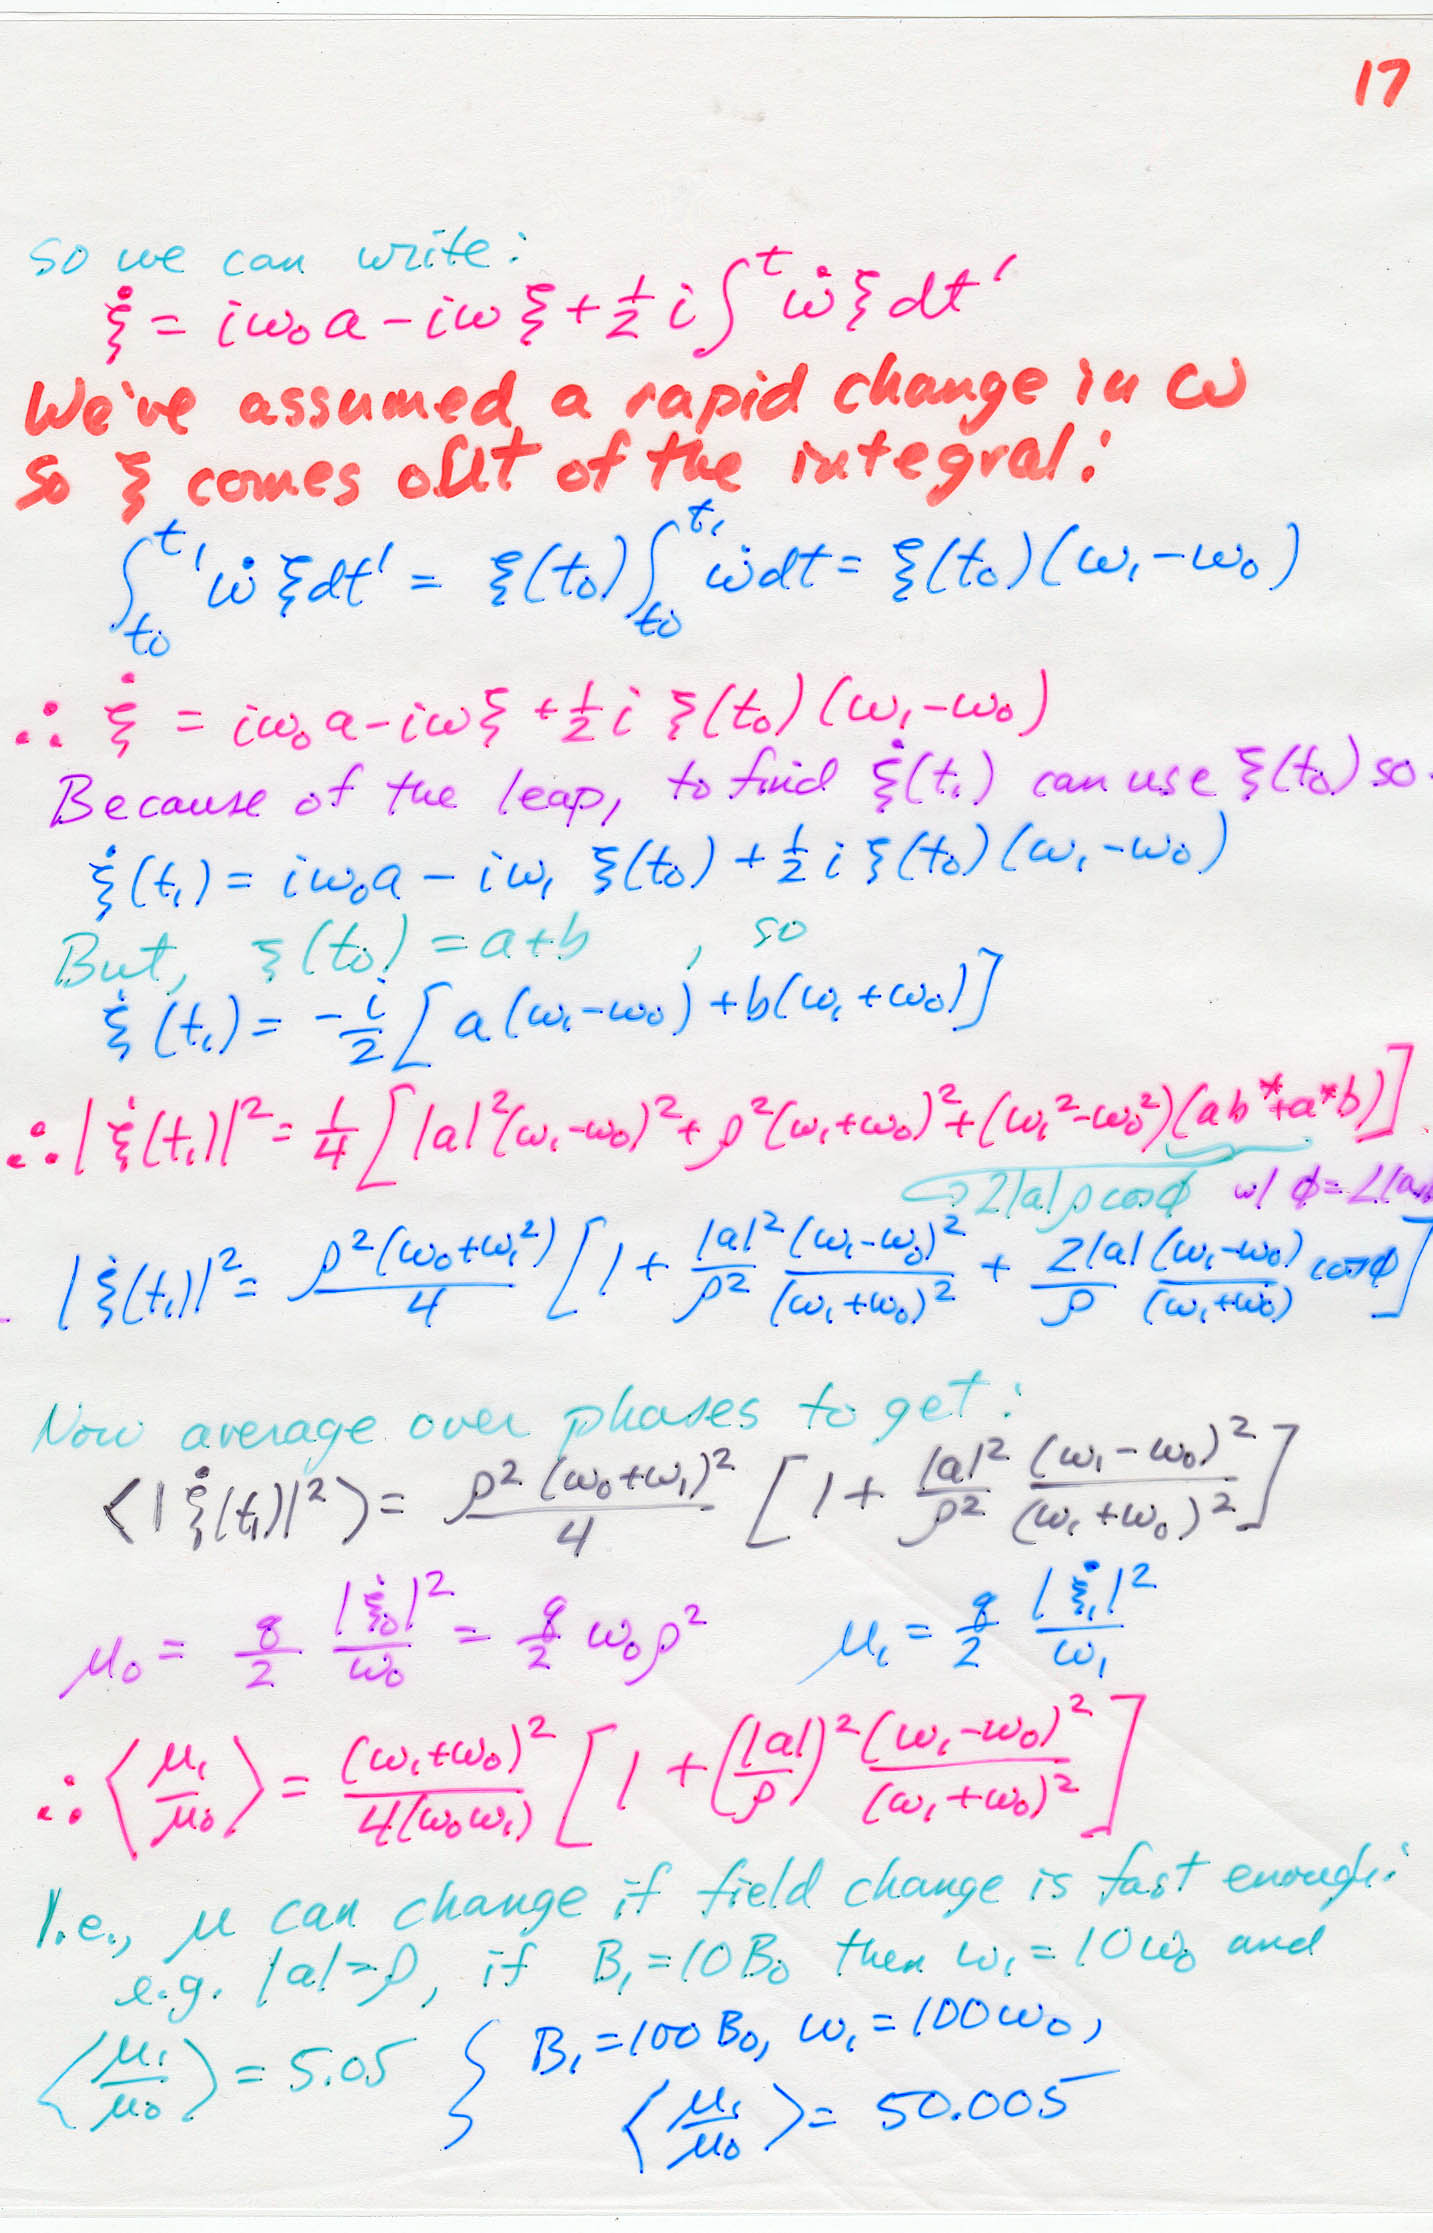 17
so we can write:
ξ̇ = iω₀a − iωξ + ½ i ∫ᵗ ω̇ ξ dt′
We've assumed a rapid change in ω
so ξ comes out of the integral:
∫_{t₀}^{t′} ω̇ ξ dt′ = ξ(t₀) ∫_{t₀}^{t₁} ω̇ dt = ξ(t₀)(ω₁ − ω₀)
∴ ξ̇ = iω₀a − iωξ + ½ i ξ(t₀)(ω₁ − ω₀)
Because of the leap, to find ξ̇(t₁) can use ξ(t₀) so
ξ̇(t₁) = iω₀a − iω₁ ξ(t₀) + ½ i ξ(t₀)(ω₁ − ω₀)
But, ξ(t₀) = a + b , so
ξ̇(t₁) = −i/2 [a(ω₁ − ω₀) + b(ω₁ + ω₀)]
∴ |ξ̇(t₁)|² = ¼ [|a|²(ω₁ − ω₀)² + ρ²(ω₁ + ω₀)² + (ω₁² − ω₀²)(ab* + a*b)]
→ 2|a|ρ cosφ w/ φ = ∠(a,b
|ξ̇(t₁)|² = ρ²(ω₀ + ω₁²)/4 [1 + |a|²/ρ² (ω₁ − ω₀)²/(ω₁ + ω₀)² + 2|a|/ρ (ω₁ − ω₀)/(ω₁ + ω₀) cosφ]
Now average over phases to get:
⟨|ξ̇(t₁)|²⟩ = ρ²(ω₀ + ω₁)²/4 [1 + |a|²/ρ² (ω₁ − ω₀)²/(ω₁ + ω₀)²]
μ₀ = q/2 |ξ̇₀|²/ω₀ = q/2 ω₀ρ² μ₁ = q/2 |ξ̇₁|²/ω₁
∴ ⟨μ₁/μ₀⟩ = (ω₁ + ω₀)²/4(ω₀ω₁) [1 + (|a|/ρ)² (ω₁ − ω₀)²/(ω₁ + ω₀)²]
I.e., μ can change if field change is fast enough:
e.g. |a| = ρ, if B₁ = 10B₀ then ω₁ = 10ω₀ and
⟨μ₁/μ₀⟩ = 5.05 { B₁ = 100B₀, ω₁ = 100ω₀,
⟨μ₁/μ₀⟩ = 50.005